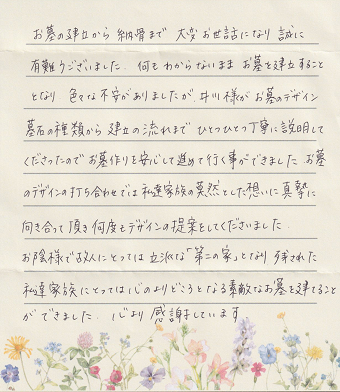 お墓の建立から 納骨まで 大変お世話になり 誠に
有難うございました. 何もわからないまま お墓を建立すること
となり 色々な不安がありましたが、井川様が お墓のデザイン
墓石の種類から 建立の流れまで ひとつひとつ丁寧に説明して
くださったので お墓作りを安心して進めて行く事ができました. お墓
のデザインの打ち合わせでは私達家族の莫然とした想いに真摯に
向き合って頂き何度もデザインの提案をしてくださいました.
お陰様で故人にとっては 立派な「第二の家」となり 残された
私達家族にとっては心のよりどころとなる素敵なお墓を建てること
ができました. 心より 感謝しています